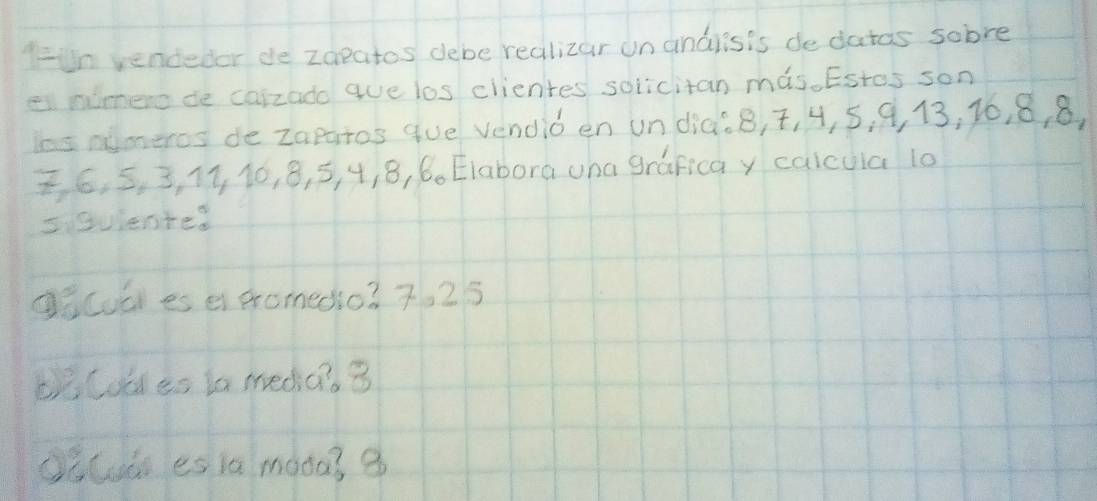 1=Un vendedor de zapatos debe realizar un análisis de datos sobre
el número de calzado que los clientes solicitan más. Estos son
los números de zapatos que vendió en un dia: 8, 7, 4, 5, 9, 13, 10, 8, 8,
7, 6, 5, 3, 11, 10, 8, 5, 4, 8, 6. Elabora una gráfica y calcula lo
siguiente:
a¿Cuál es el promedio? 7.25
b¿Cuál es la media? 8
c¿Cuál es la moda? 8